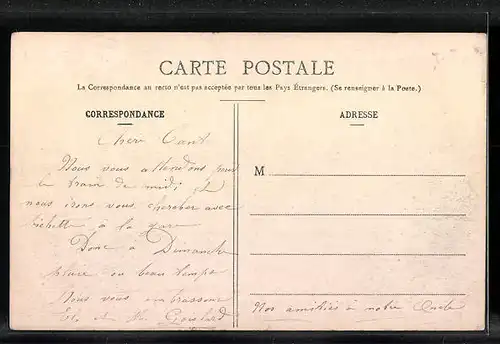 CARTE POSTALE
La Correspondance au recto n'est pas acceptée par tous les Pays Étrangers. (Se renseigner à la Poste.)
CORRESPONDANCE
ADRESSE
M
Chère Tant
Nous vous attendons pour
le train de midi et
nous irons vous chercher avec
à la gare
Donc à Dimanche
pluie ou beau temps
Nous vous embrassons
Et.
Nos amitiés à notre Oncle